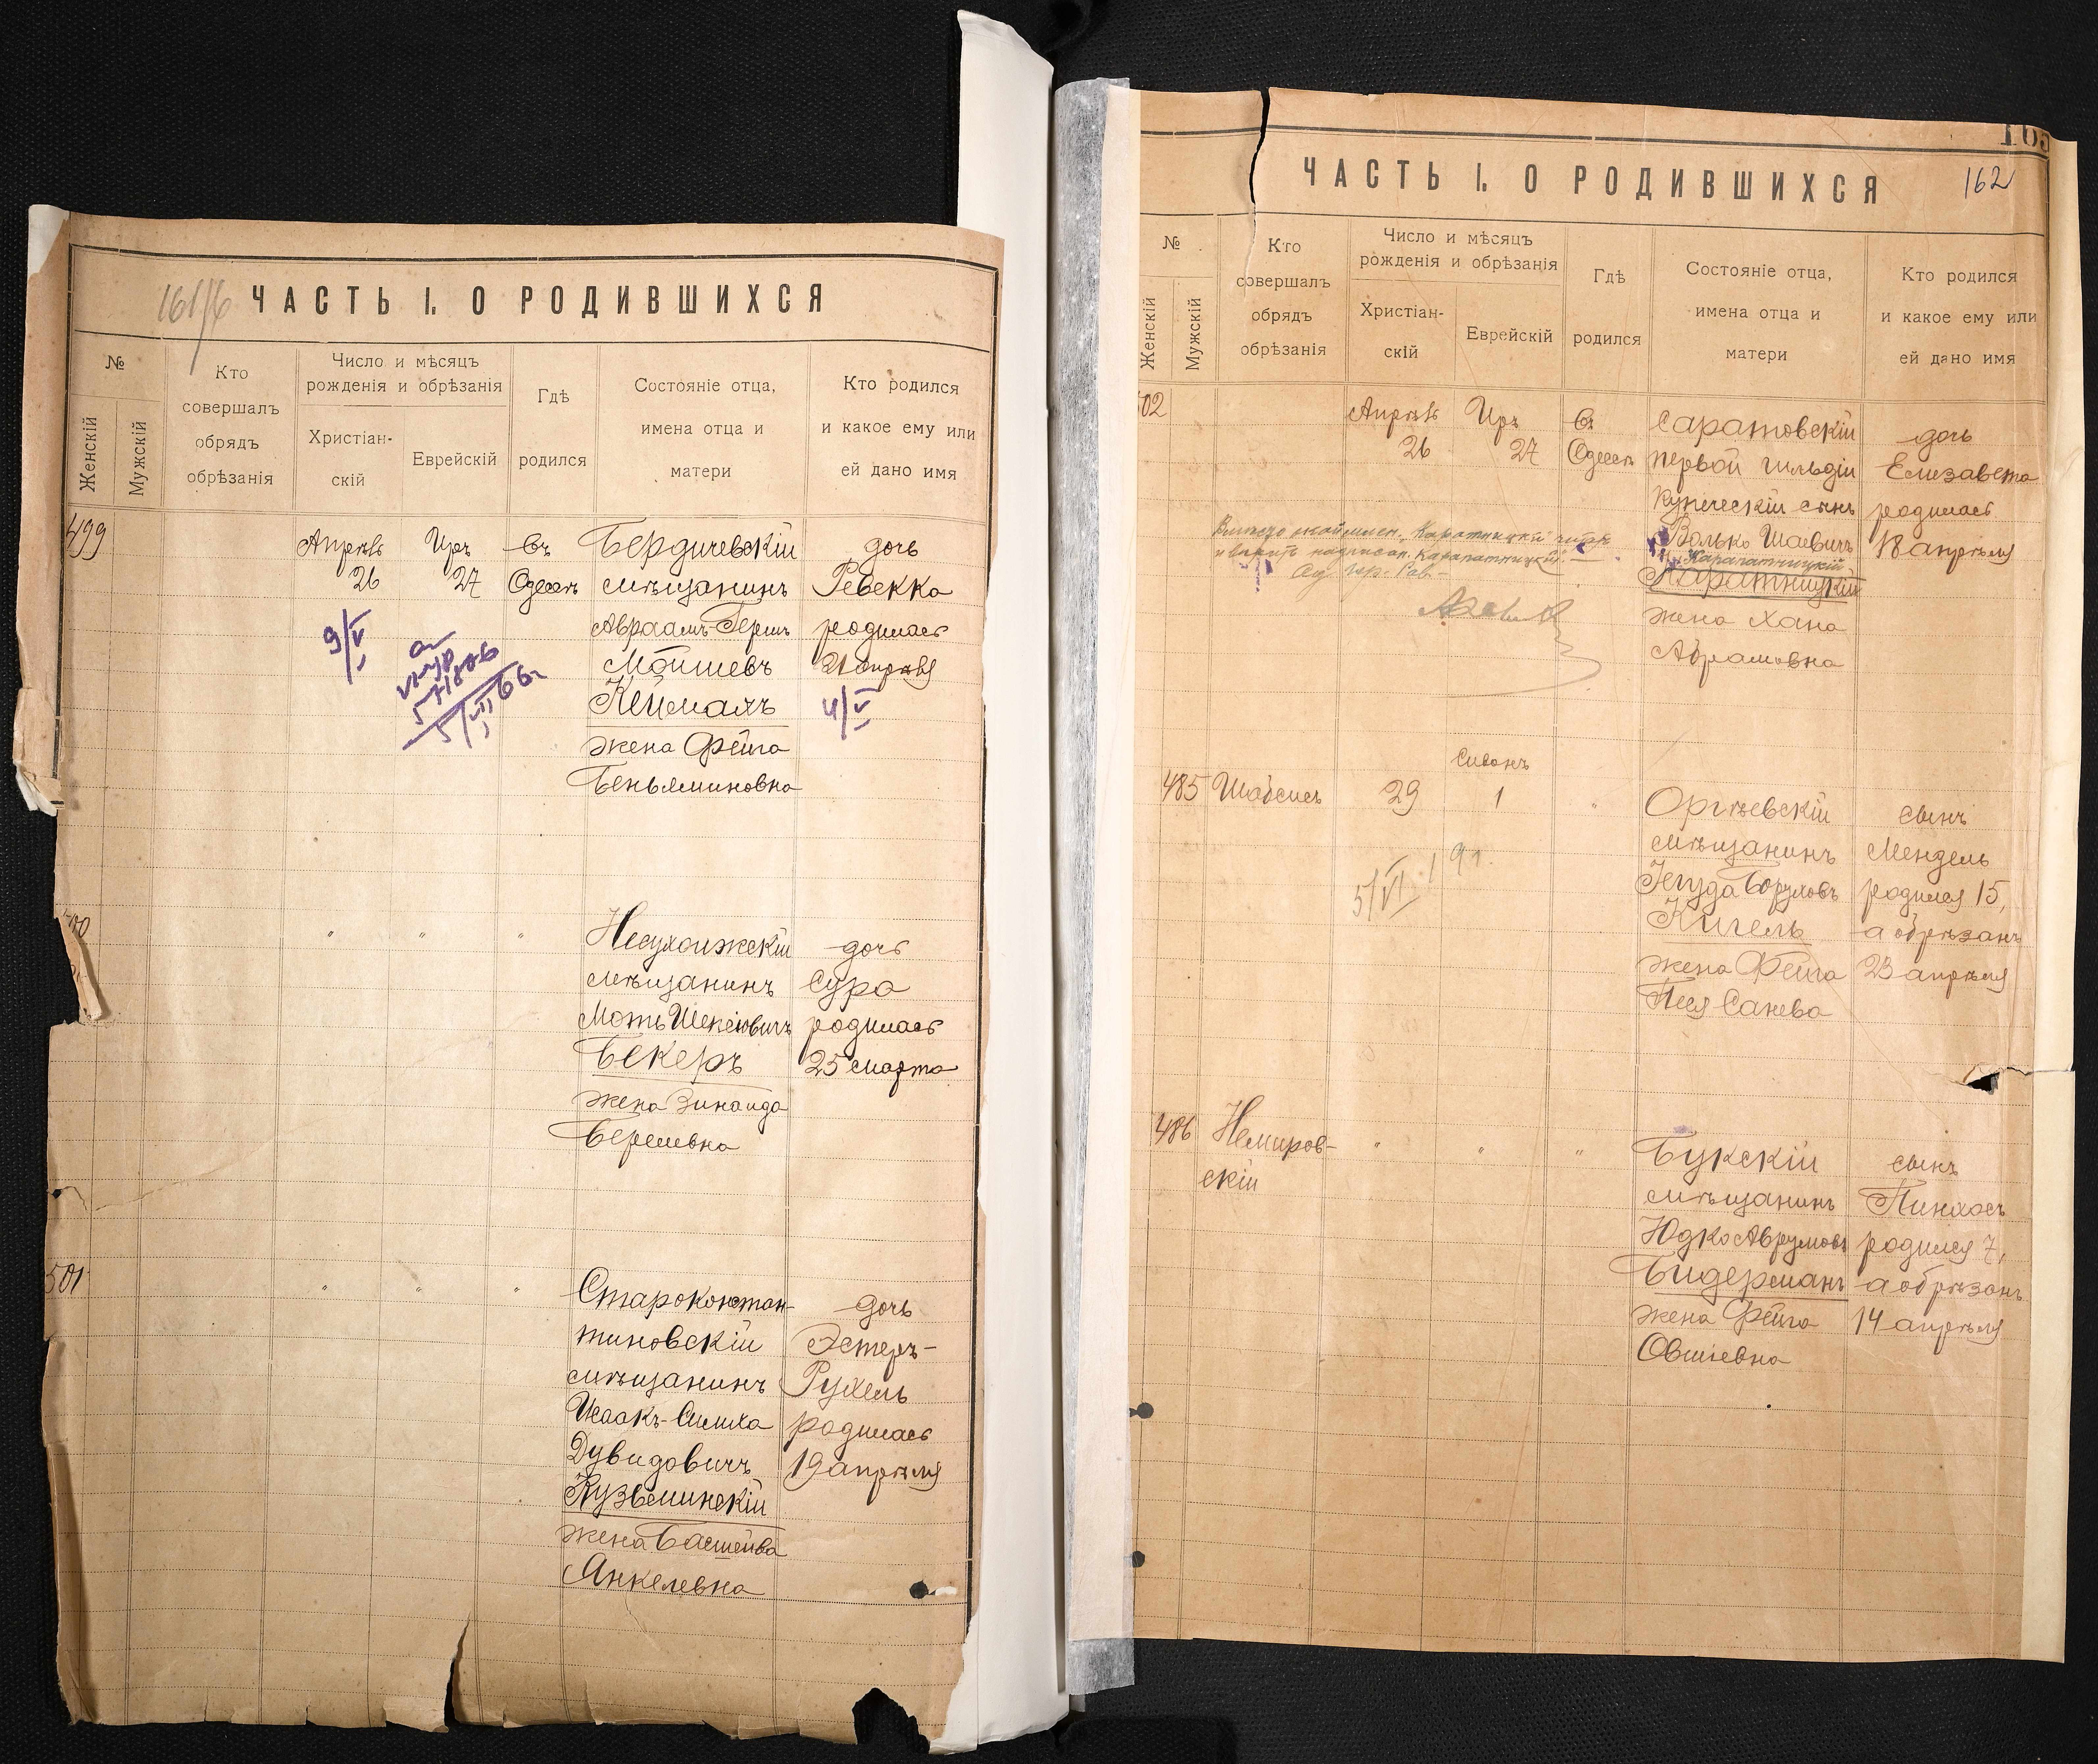 ЧАСТЬ I. О РОДИВШИХСЯ
№
Женскій
Мужскій
Кто
совершалъ
обрядъ
обрѣзанія
Число и мѣсяцъ
рожденія и обрѣзанія
Христіан-
скій
Еврейскій
Гдѣ
родился
Состояніе отца,
имена отца и
матери
Кто родился
и какое ему или
ей дано имя
499
Апрѣль
26
Иръ
27
Въ
Одессѣ
Бердичевскій
мѣщанинъ
Авраамъ-Герш
Мошневъ
Кейсманъ
жена Фейга
Беньяминовна
дочь
Ревекка
родилась
21 апрѣля
9/V
4/V
" " "
Несухоижскій
мѣщанинъ
Моть
Бекеръ
жена Зинаида
Берелевна
дочь
Сура
родилась
25 марта
501
" " "
Староконстан-
тиновскій
мѣщанинъ
Исаакъ-Симха
Дувидовичъ
Кузьминскій
жена Башейва
Янкелевна
дочь
Эстеръ-
Рухель
родилась
19 апрѣля
ЧАСТЬ I. О РОДИВШИХСЯ
162
№
Женскій
Мужскій
Кто
совершалъ
обрядъ
обрѣзанія
Число и мѣсяцъ
рожденія и обрѣзанія
Христіан-
скій
Еврейскій
Гдѣ
родился
Состояніе отца,
имена отца и
матери
Кто родился
и какое ему или
ей дано имя
02
Апрѣль
26
Иръ
27
Въ
Одессѣ
Саратовскій
первой гильдіи
купеческій сынъ
Волько Шаевичъ
Карапатницкій
Каратницкій
жена Хана
Абрамовна
дочь
Елизавета
родилась
18 апрѣля
485
Шабсисъ
29
Сиванъ
1
"
Оргѣевскій
мѣщанинъ
Іегуда Боруховъ
Кигель
жена Фейга
Песя Санева
сынъ
Мендель
родился 15,
а обрѣзанъ
23 апрѣля
5/VI
486
Немиров-
скій
" " "
Букскій
мѣщанинъ
Юдко Аврумовъ
Бидерманъ
жена Фейга
Овшіевна
сынъ
Пинхосъ
родился 7,
а обрѣзанъ
14 апрѣля